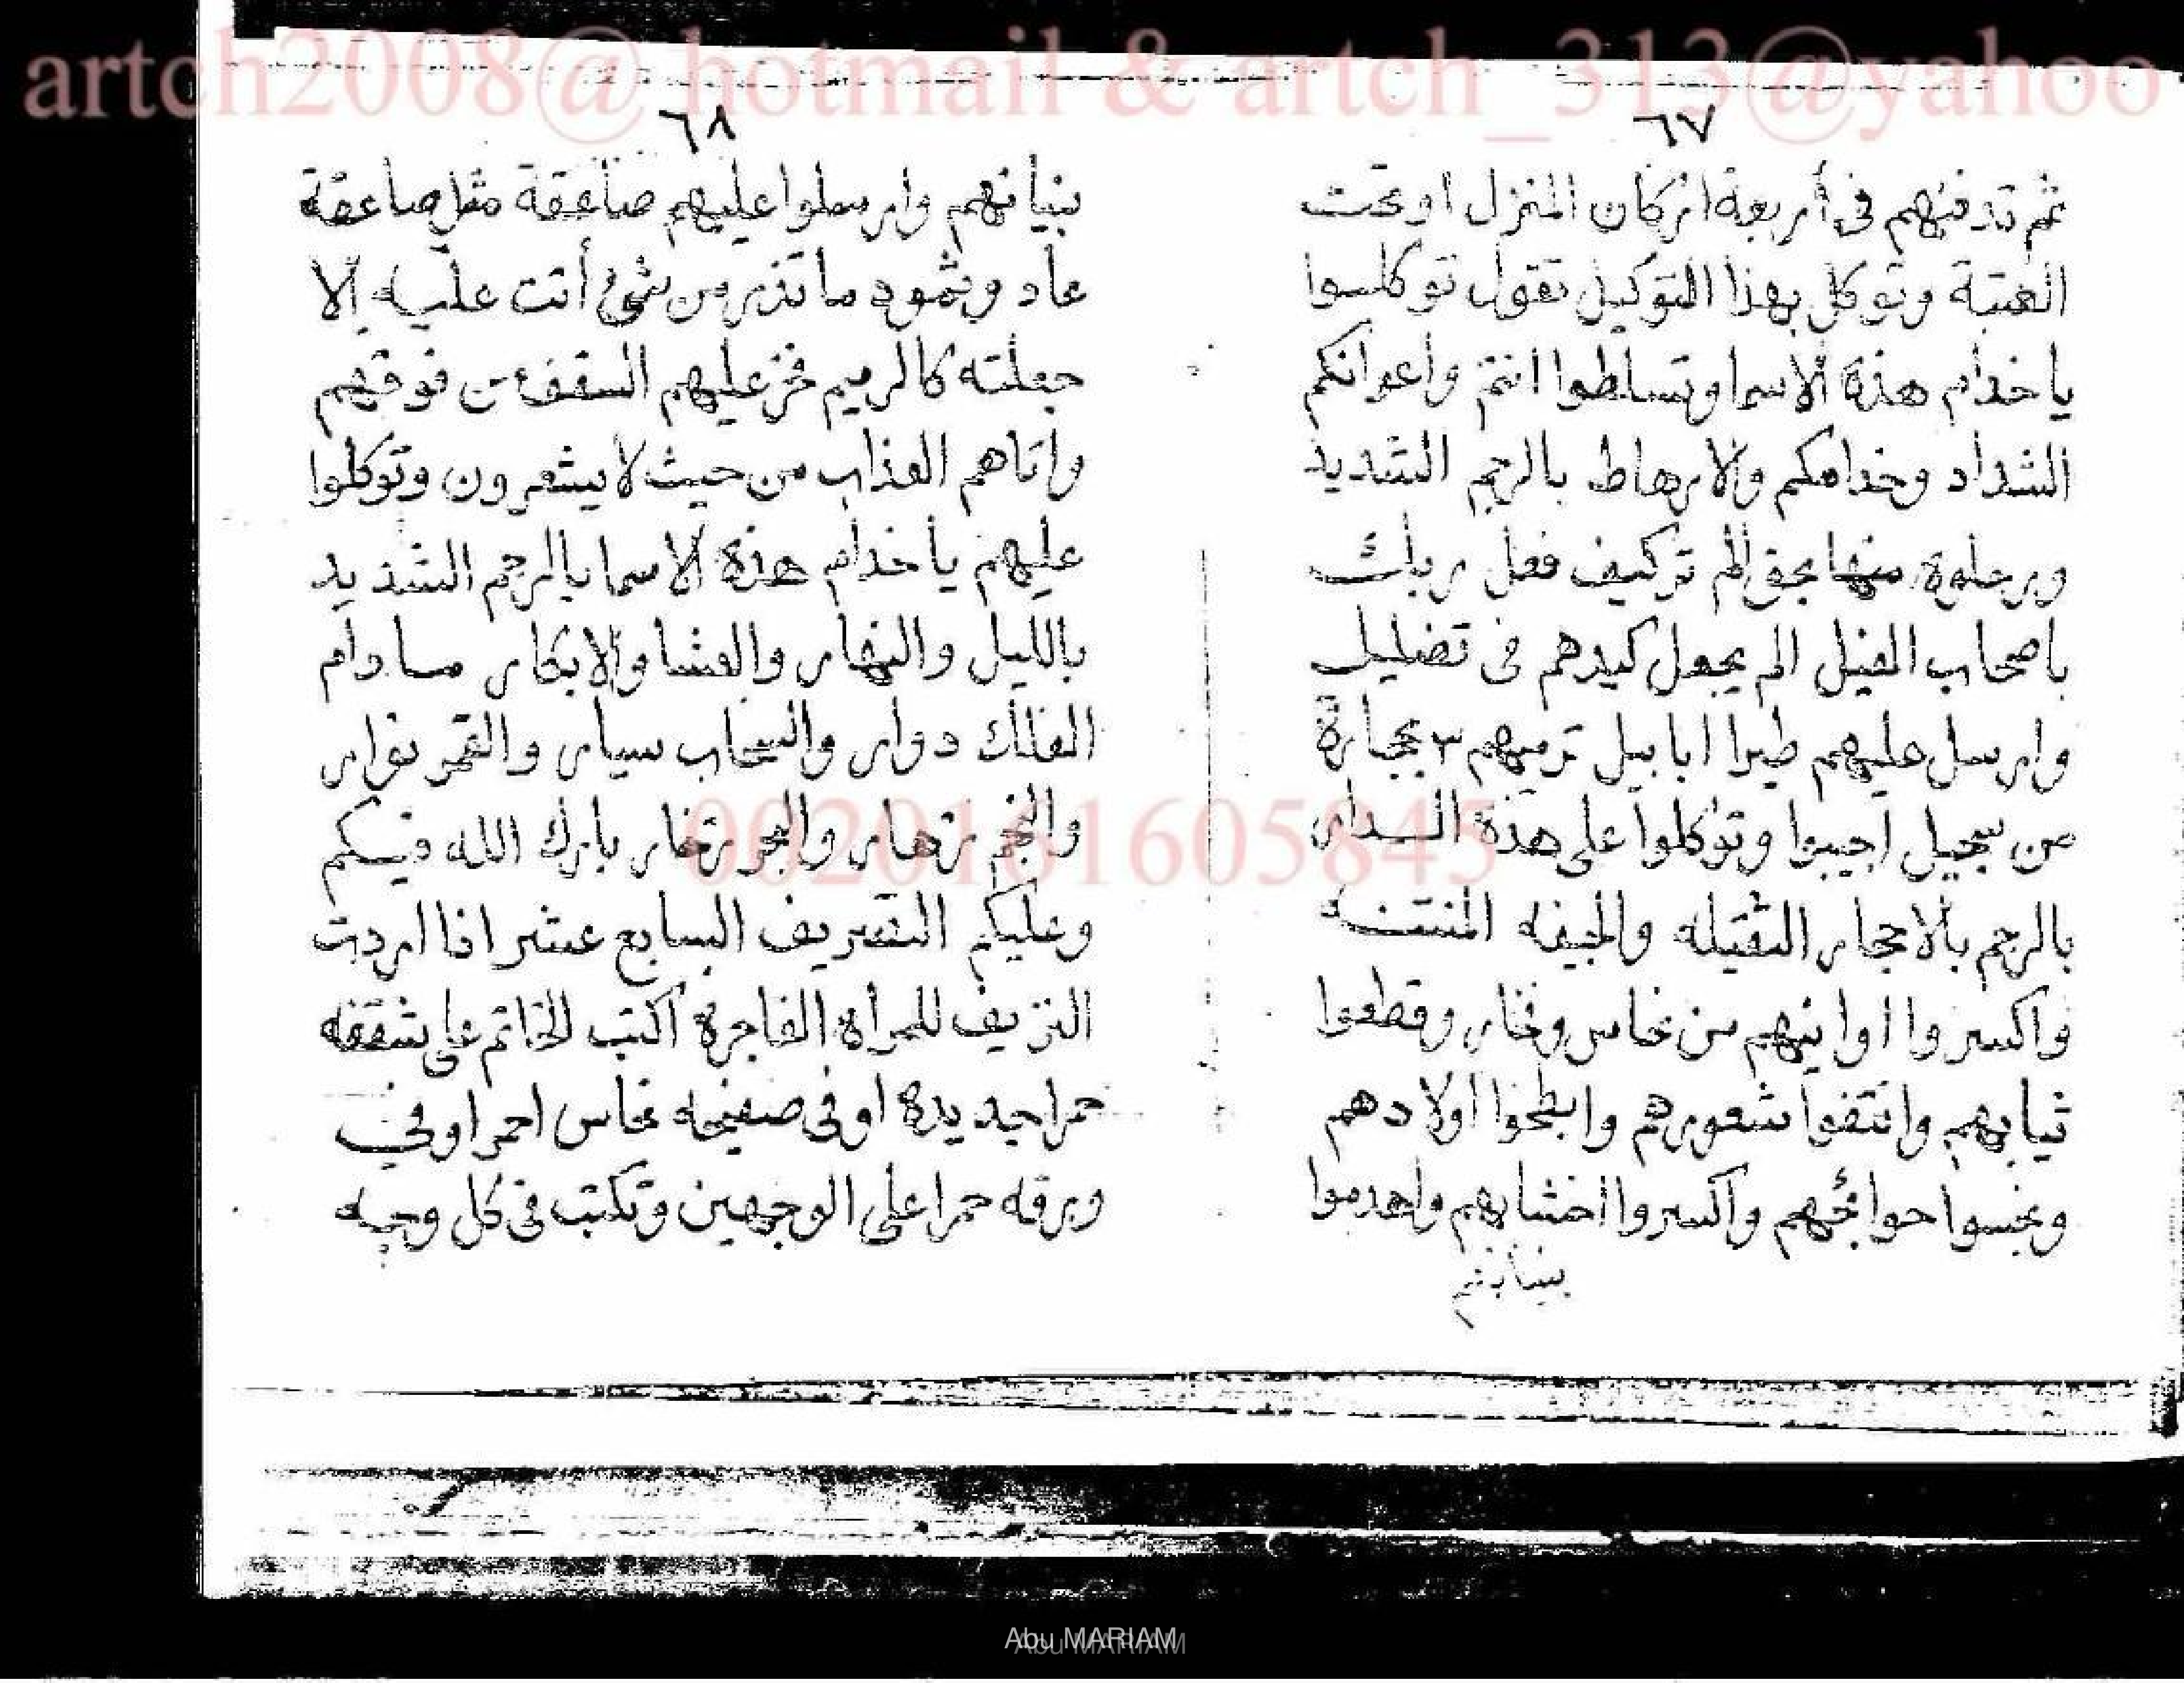 artch2008@ hotmail & artch_313@yahoo
٦٧
ثم تدفنهم فى أربعة اركان المنزل اوتحت
العتبة وتوكل بهذا التوكيل تقول توكلسوا
يا خدام هذة الاسما وتسلطوا انتم واعوانكم
الشداد وخدامكم والارهاط بالرجم الشديد
ورحلوة منها بحق الم تركيف فعل ربك
باصحاب الفيل الم يجعل كيدهم فى تضليل
وارسل عليهم طيرا ابابيل ترميهم ٣ بحجارة
من سجيل اجيبوا وتوكلوا على هذة الدار
بالرجم بالاحجار الثقيله والجيفه المنتنه
واكسروا اوانيهم من نحاس وفخار وقطعوا
ثيابهم وانتفوا شعورهم وابطحوا اولادهم
ونجسوا حوائجهم واكسروا اخشابهم واهدموا
بنيانهم
٦٨
بنيانهم وارسلوا عليهم صاعقة مثل صاعقة
عاد وثمود ما تذر من شئ أتت عليه الا
جعلته كالرميم فخر عليهم السقف من فوقهم
واتاهم العذاب من حيث لا يشعرون وتوكلوا
عليهم يا خدام هذة الاسما بالرجم الشديد
بالليل والنهار والعشا والابكار مادام
الفلك دوار والسحاب سيار والقمر نوار
والنجم زهار والبحر زخار بارك الله فيكم
وعليكم التصريف السابع عشر اذا اردت
النزيف للمرأة الفاجرة اكتب الخاتم على شقفه
حمرا جديدة او فى صفيحه نحاس احمر اوفى
ورقه حمرا على الوجهين وتكتب فى كل وجه
0020161605845
Abu MARIAM